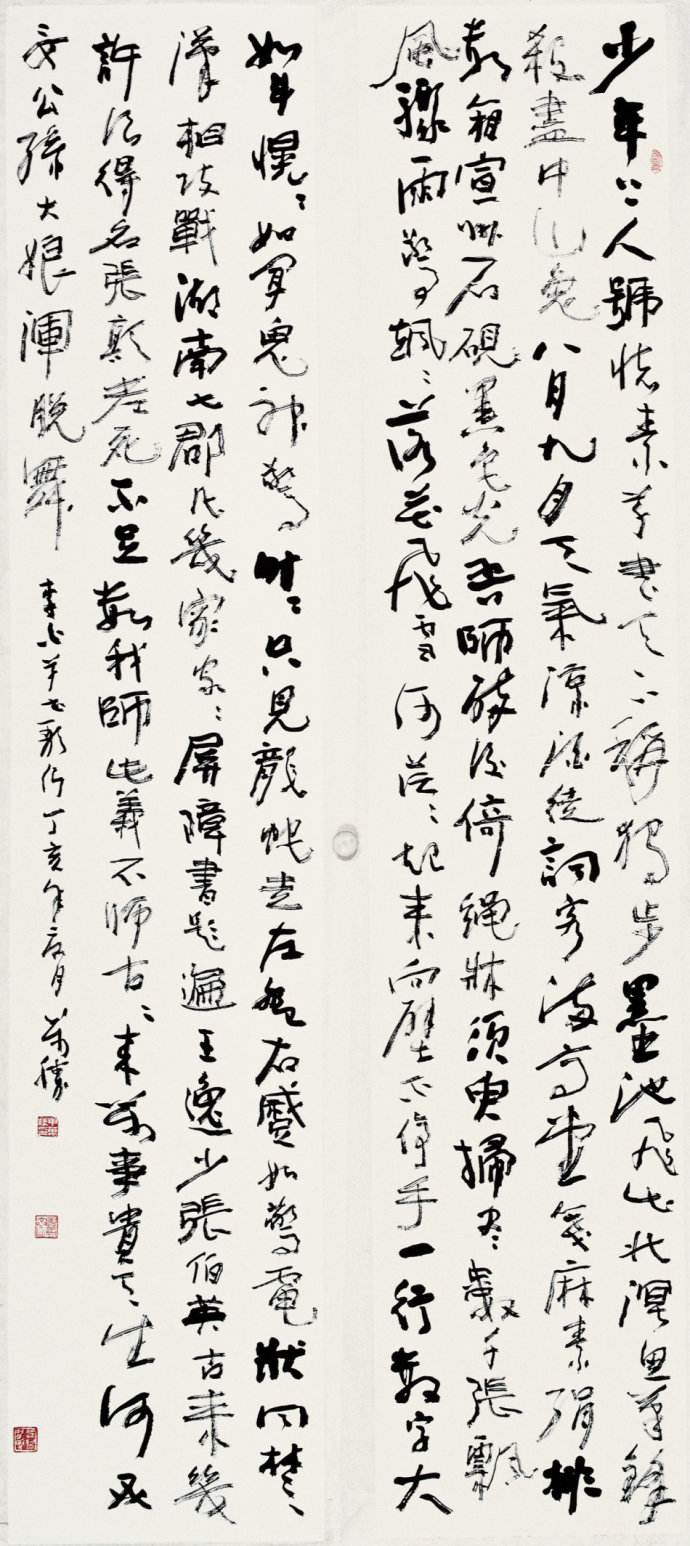 少年上人號懷素草書天下稱獨步墨池飛出北溟魚筆鋒
殺盡中山兔八月九月天氣涼酒徒詞客滿高堂箋麻素絹排
數箱宣州石硯墨色光吾師醉後倚繩牀須臾掃盡數千張飄
風驟雨驚颯々落花飛雪何茫々起來向壁不停手一行數字大
如斗愰々如聞鬼神驚時々只見龍蛇走左盤右蹙如驚電狀同楚
漢相攻戰湖南七郡凡幾家家々屏障書題遍王逸少張伯英古來幾
許浪得名張顛老死不足數我師此義不師古々來萬事貴天生何必
要公孫大娘渾脫舞 李白草書歌行丁亥年夏月萬勝